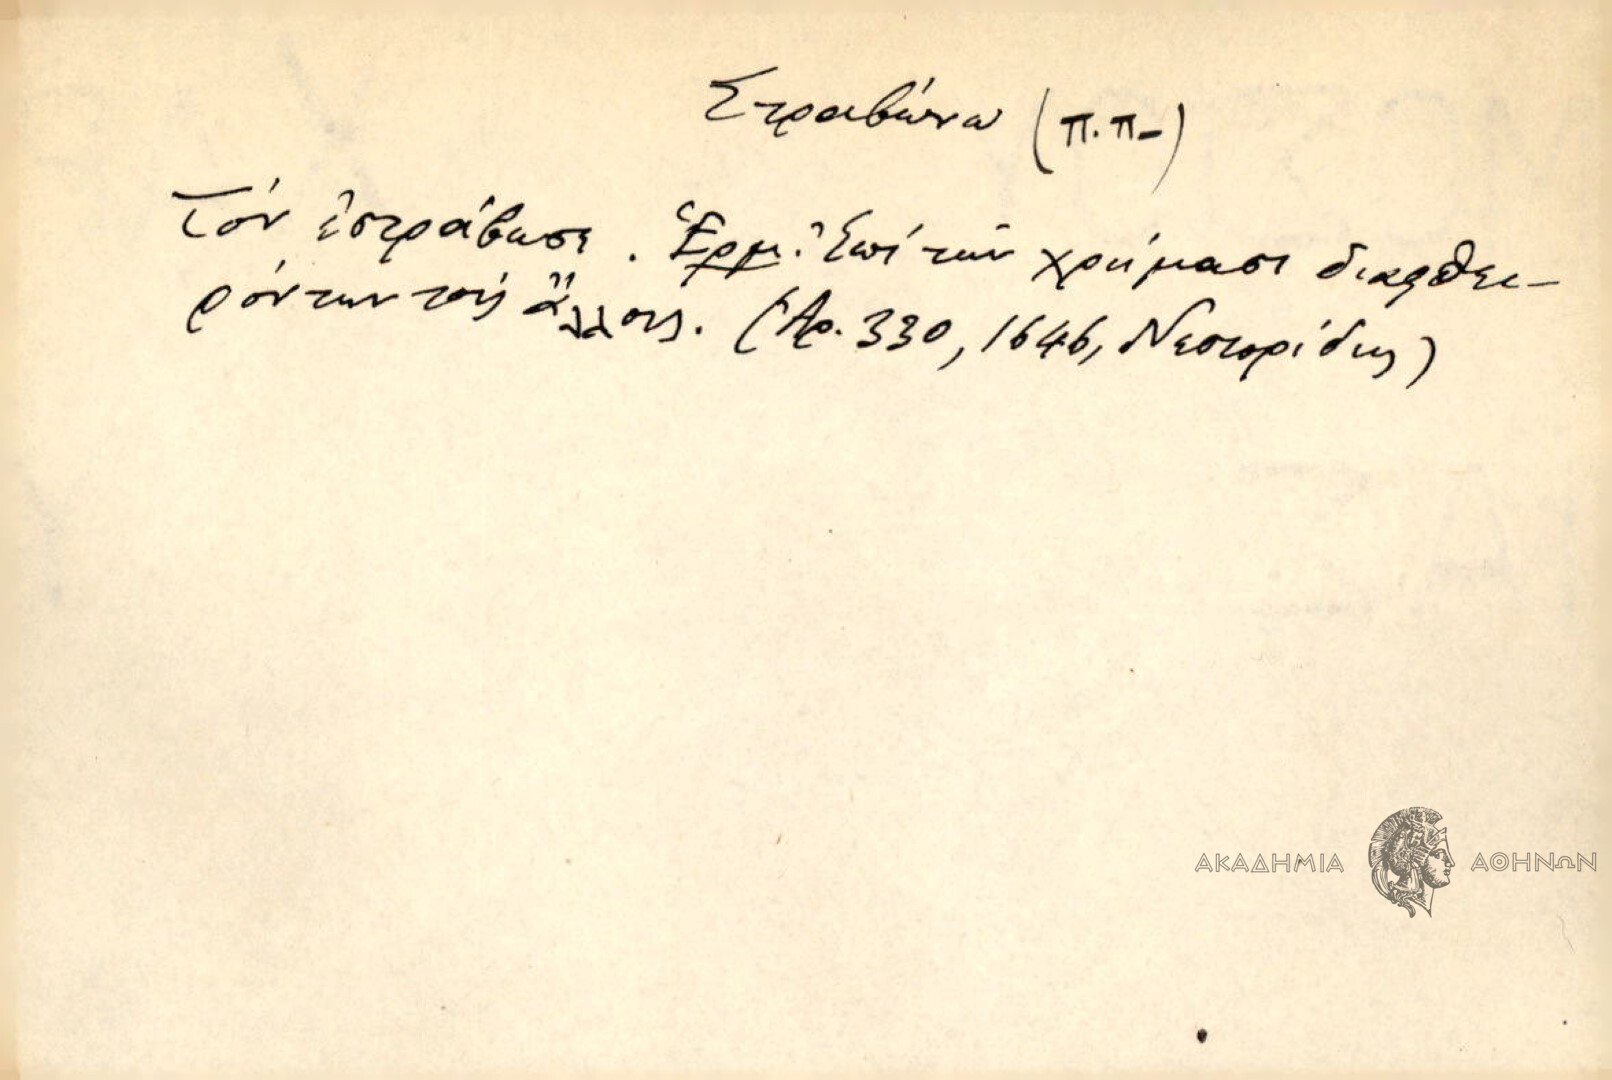 Στραβώνω (π.π-)
Τόν ἐστράβωσε. Ἑρμ. Ἐπί τῶν χρήμασι διαφθει-
ρόντων τούς ἄλλους. (Ἀρ. 330, 1646, Νεστορίδης)
ΑΚΑΔΗΜΙΑ ΑΘΗΝΩΝ